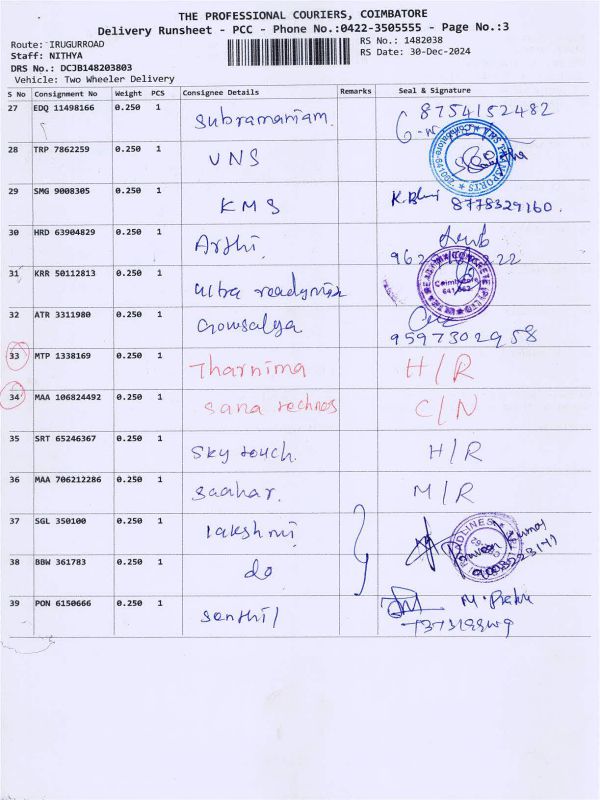 THE PROFESSIONAL COURIERS, COIMBATORE
Delivery Runsheet - PCC - Phone No.:0422-3505555 - Page No.:3
Route: IRUGURROAD
RS No.: 1482038
Staff: NITHYA
RS Date: 30-Dec-2024
DRS No.: DCJB148203803
Vehicle: Two Wheeler Delivery
S No Consignment No Weight PCS Consignee Details Remarks Seal & Signature
27 EDQ 11498166 0.250 1 Subramaniam. 8754152482
28 TRP 7862259 0.250 1 VNS
29 SMG 9008305 0.250 1 KMS 8778329160.
30 HRD 63904829 0.250 1 Arthi
31 KRR 50112813 0.250 1 ultra readymix
Coimbatore
32 ATR 3311980 0.250 1 Gowsalya 9597302958
33 MTP 1338169 0.250 1 Tharnima H/R
34 MAA 106824492 0.250 1 sana technos C/N
35 SRT 65246367 0.250 1 Sky touch. H/R
36 MAA 706212286 0.250 1 Saahar. M/R
37 SGL 350100 0.250 1 lakshmi
38 BBW 361783 0.250 1 do
39 PON 6150666 0.250 1 Senthil